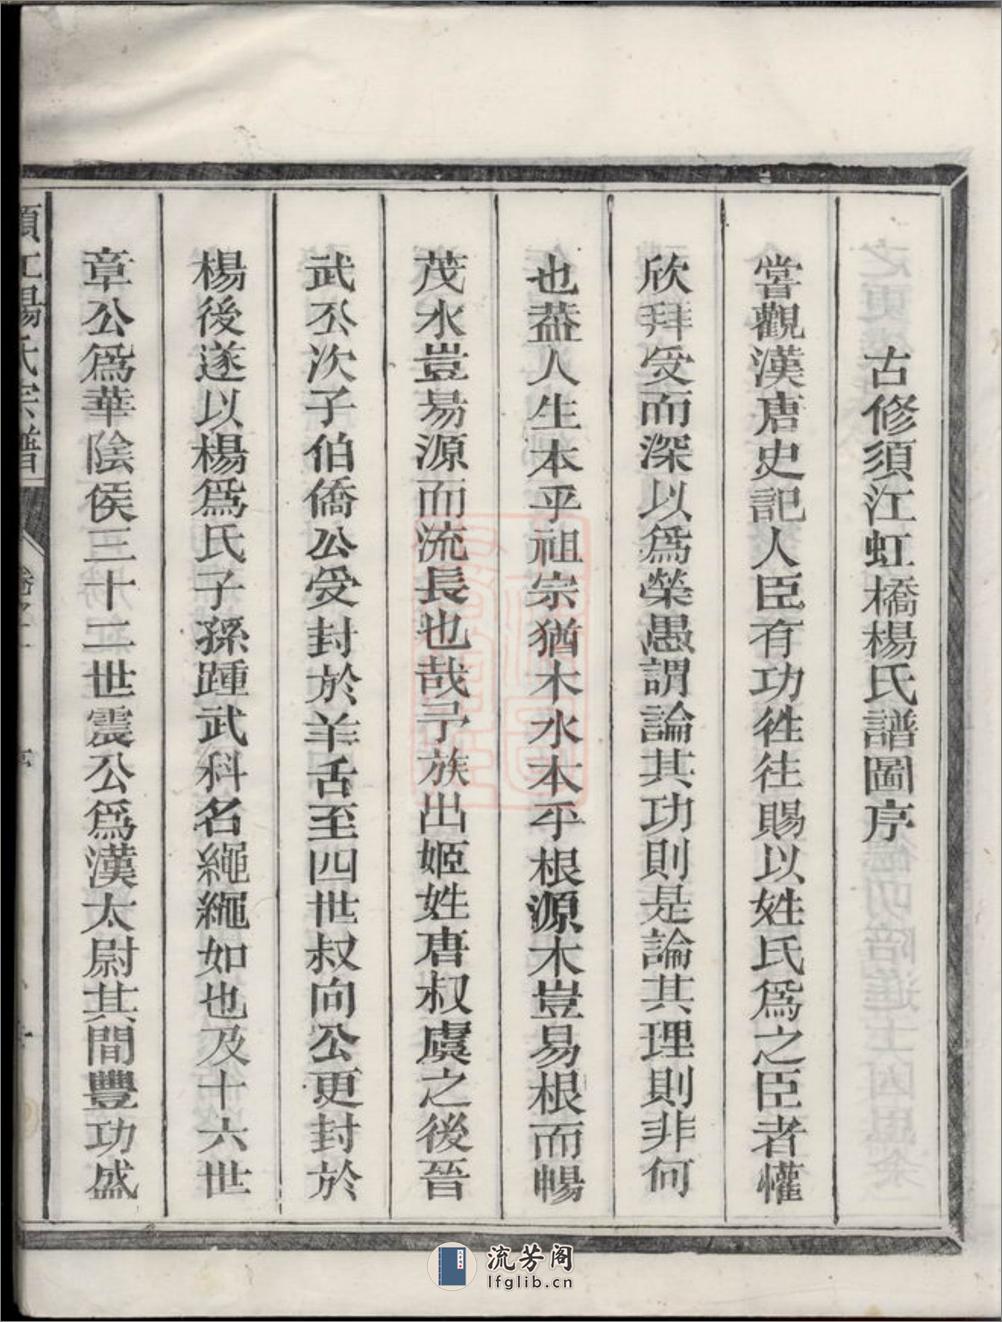 古修須江虹橋楊氏譜圖序
嘗觀漢唐史記人臣有功徃往賜以姓氏爲之臣者懽
欣拜受而深以爲榮愚謂論其功則是論其理則非何
也葢人生本乎祖宗猶木水本乎根源木豈易根而暢
茂水豈易源而流長也哉予族出姬姓唐叔虞之後晉
武公次子伯僑公受封於羊舌至四世叔向公更封於
楊後遂以楊爲氏子孫踵武科名繩繩如也及十六世
章公爲華陰侯三十二世震公爲漢太尉其間豐功盛
須江楊氏宗譜
流芳阁
lfglib.cn